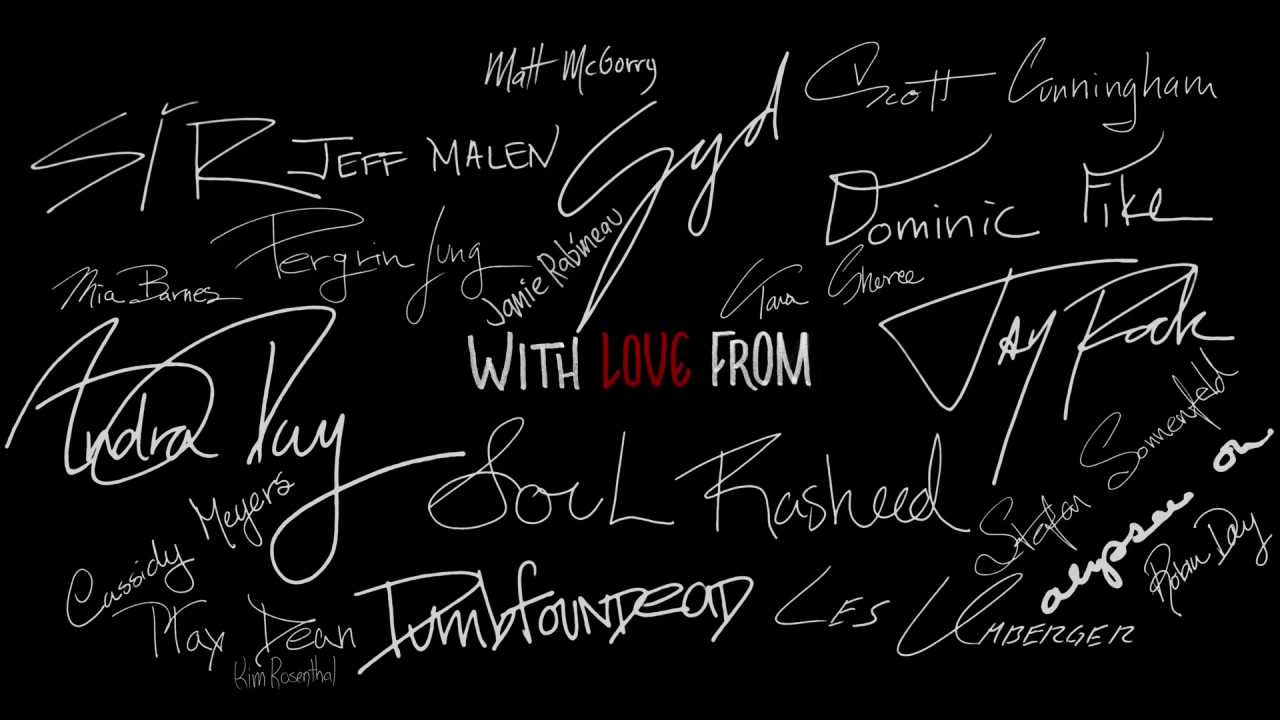 Matt McGorry
Scott Cunningham
SIR
JEFF MALEN
Gyd
Dominic Fike
Pergrin Jung
Jamie Rabineau
Mia Barnes
Tara Sheree
Jay Rock
WITH LOVE FROM
Andra Day
Soul Rasheed
Stefan Sonnenfeld
Cassidy Meyers
alypsee on
Robin Day
Max Dean
DumbfounDeaD
LES UMBERGER
Kim Rosenthal